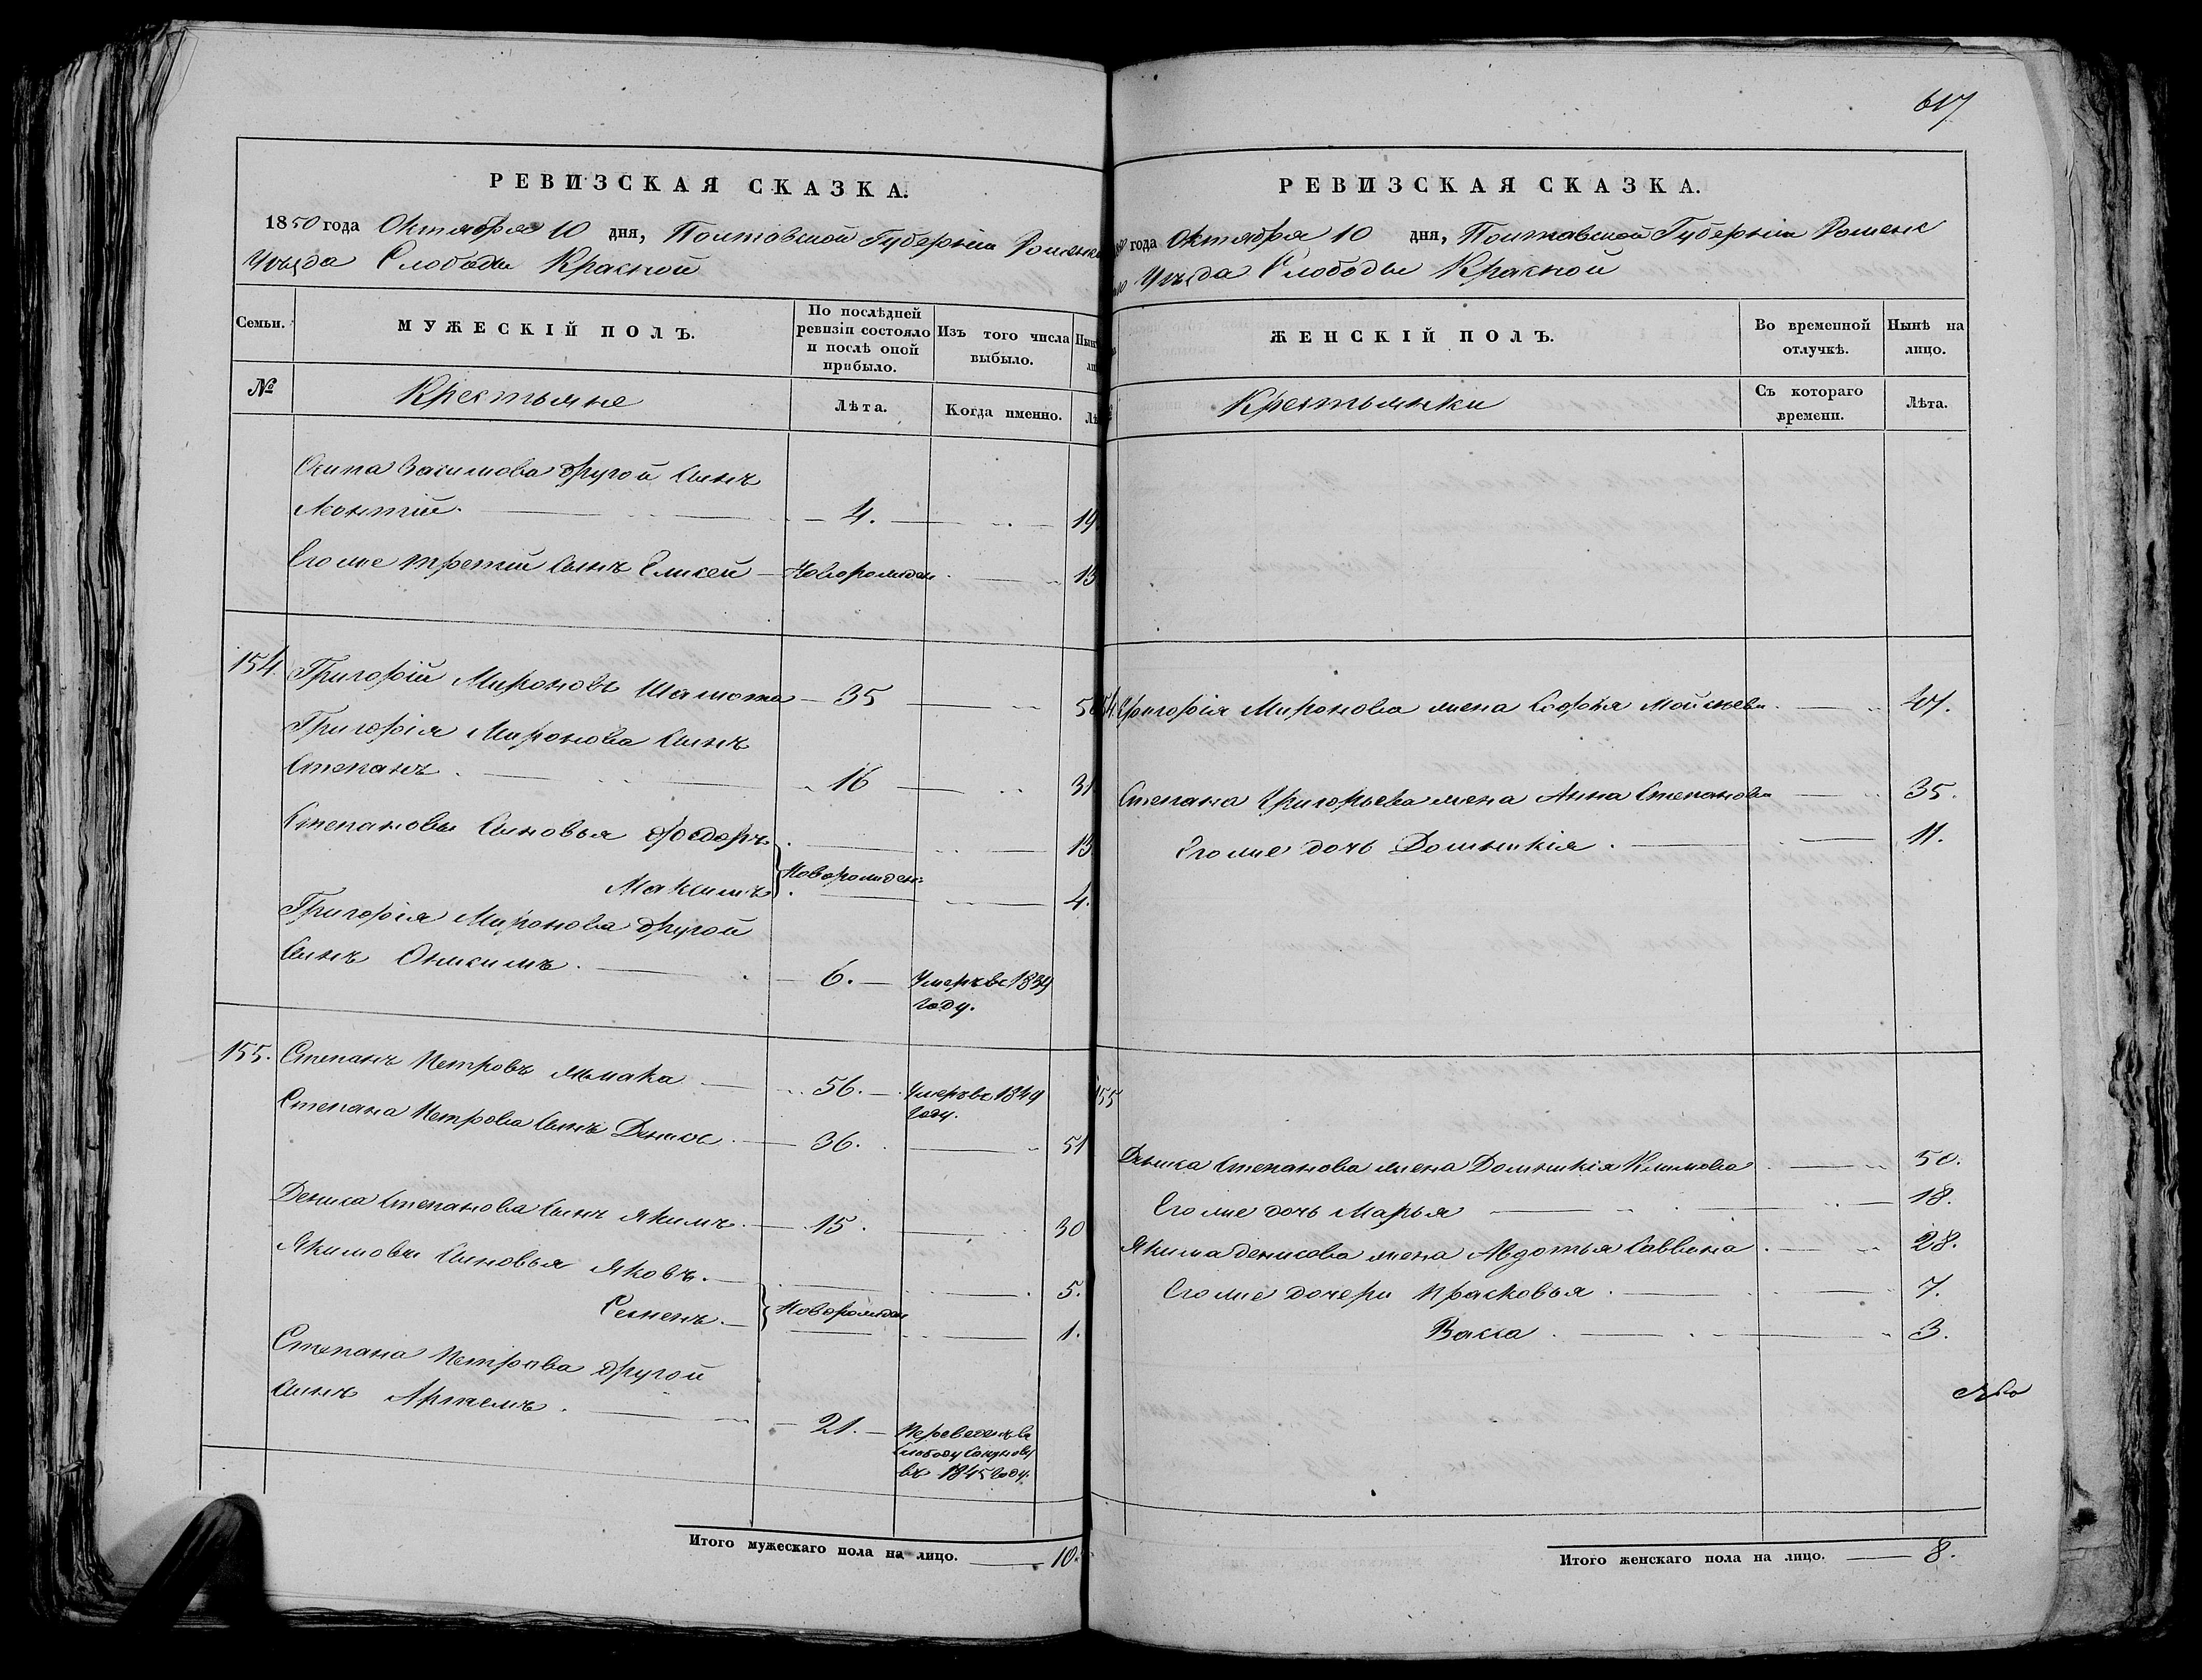 РЕВИЗСКАЯ СКАЗКА.
1850 года Октября 10 дня, Полтавской Губерніи Роменск
Уѣзда Слободы Красной
Семьи.
МУЖЕСКІЙ ПОЛЪ.
По послѣдней ревизіи состояло и послѣ оной прибыло.
Изъ того числа выбыло.
№
Крестьяне
Лѣта.
Когда именно.
Осипа другой Сынъ
Леонтій. 4. 19
Его же третій Сынъ Елисей Новорожден 13
154. Григорій Мироновъ Шамота 35 50
Григорія Миронова Сынъ
Степанъ. 16 31
Степановы Сыновья Ѳедоръ 13
Новорожден:
Максимъ 4.
Григорія Миронова другой
Сынъ Онисимъ. 6. Умеръ въ 1839
году.
155. Степанъ Петровъ 56. Умеръ въ 1849
году.
Степана Петрова Сынъ Денис. 36. 51
Дениса Степанова Сынъ Якимъ. 15. 30
Якимовы Сыновья Яковъ. 5.
Новорожден
Семенъ. 1.
Степана Петрова другой
Сынъ Артемъ. 21. Переведенъ въ
Слободу
въ 1845 году.
Итого мужескаго пола на лицо. 10.
617
РЕВИЗСКАЯ СКАЗКА.
года Октября 10 дня, Полтавской Губерніи Роменс
Уѣзда Слободы Красной
ЖЕНСКІЙ ПОЛЪ.
Во временной отлучкѣ.
Нынѣ на лицо.
Крестьянки
Съ котораго времени.
Лѣта.
Григорія Миронова жена Софья Мойсеева. 47.
Степана Григорьева жена Анна Степанова 35.
Его же дочь Домникія. 11.
155
Дениса Степанова жена Домникія Климова. 50.
Его же дочь Марья 18.
Якима Денисова жена Авдотья Саввина. 28.
Его же дочери Прасковья. 7.
Васса. 3.
Итого женскаго пола на лицо. 8.